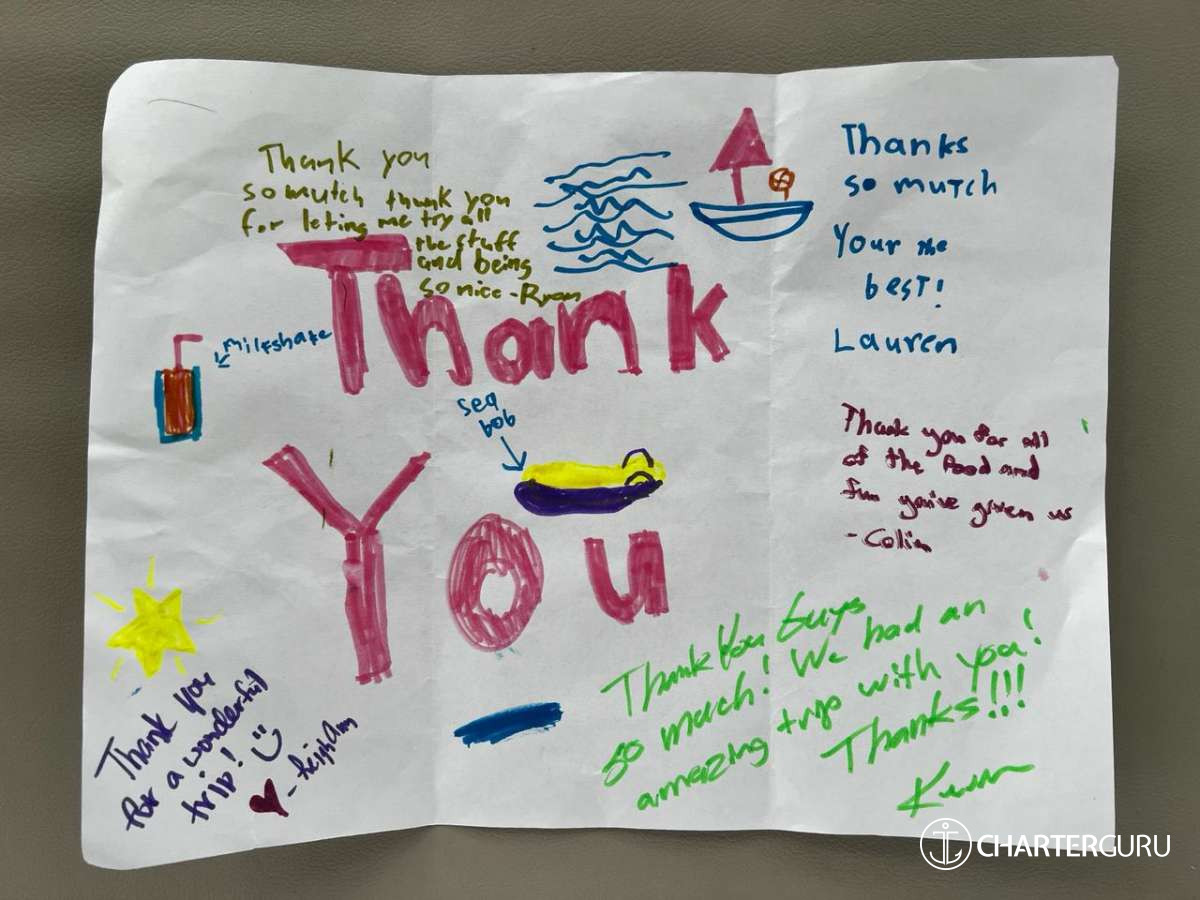 Thank you
so mutch thank you
for leting me try all
the stuff
and being
so nice - Ryan
Thanks
so mutch
Your the
best!
Lauren
Thank
milkshake
sea
bob
You
Thank you for all
of the food and
fun you've given us
- Colin
Thank You Guys
so much! We had an
amazing trip with you!
Thanks!!!
Thank you
for a wonderful
trip!
CHARTERGURU